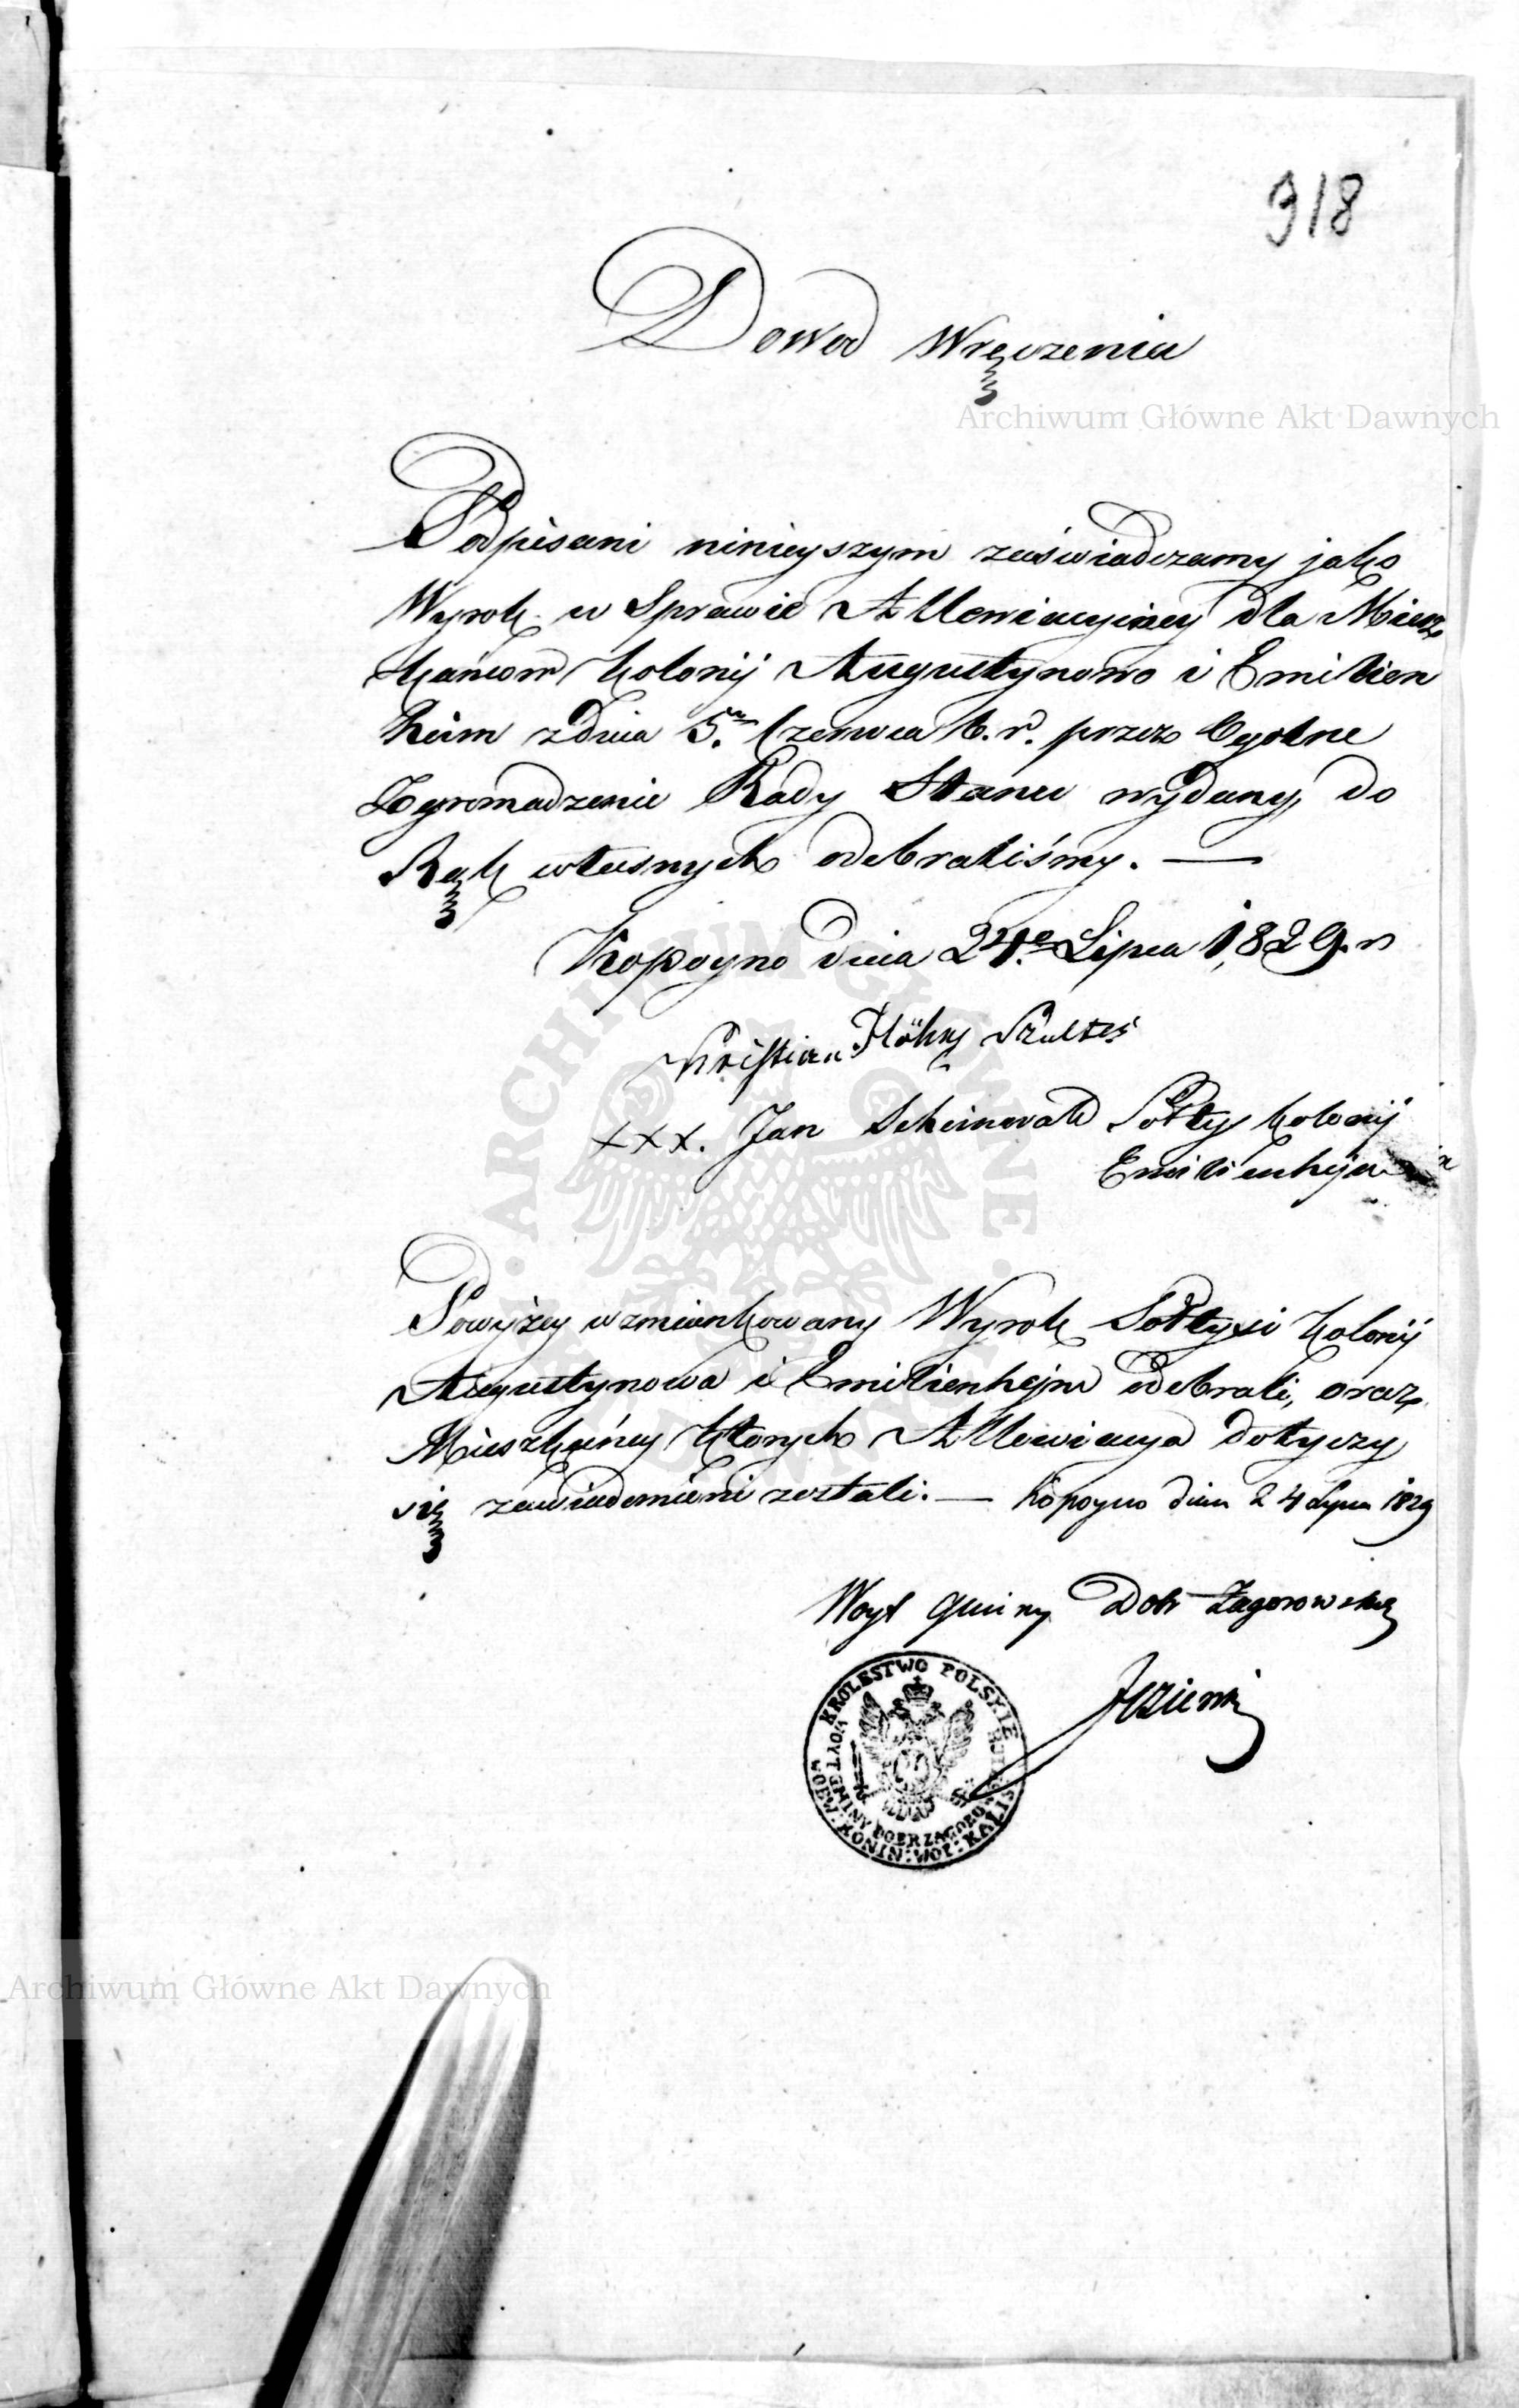 918
Dowod Wręczenia
Archiwum Główne Akt Dawnych
Podpisani ninieyszym zaświadczamy jako
Wyrok w Sprawie Allewiacyiney dla Miesz
kańcow Kolonij Augustynowo i Emilien
heim z dnia 5. Czerwca b. r. przez Ogolne
Zgromadzenie Rady Stanu wydany, do
Rąk własnych odebraliśmy. —
Kopoyno dnia 24e Lipca 1829. r
Kristian Szultes
xxx. Jan Scheinwald Sołtys Kolonij
Emilienhejm
Powyżey wzmiankowany Wyrok Sołtysi Kolonij
Augustynowa i Emilienhejm odebrali, oraz
Mieszkańcy ktorych Allewiacya dotyczy
się zawiadomieni zostali. — Kopoyno dnia 24 Lipca 1829
Woyt Gminy Dobr Zagorowskich
KROLESTWO POLSKIE
WOYT GMINY DOBR ZAGOROW
OBW: KONIN: WOP: KALIS
ARCHIWUM GŁÓWNE AKT DAWNYCH
Archiwum Główne Akt Dawnych